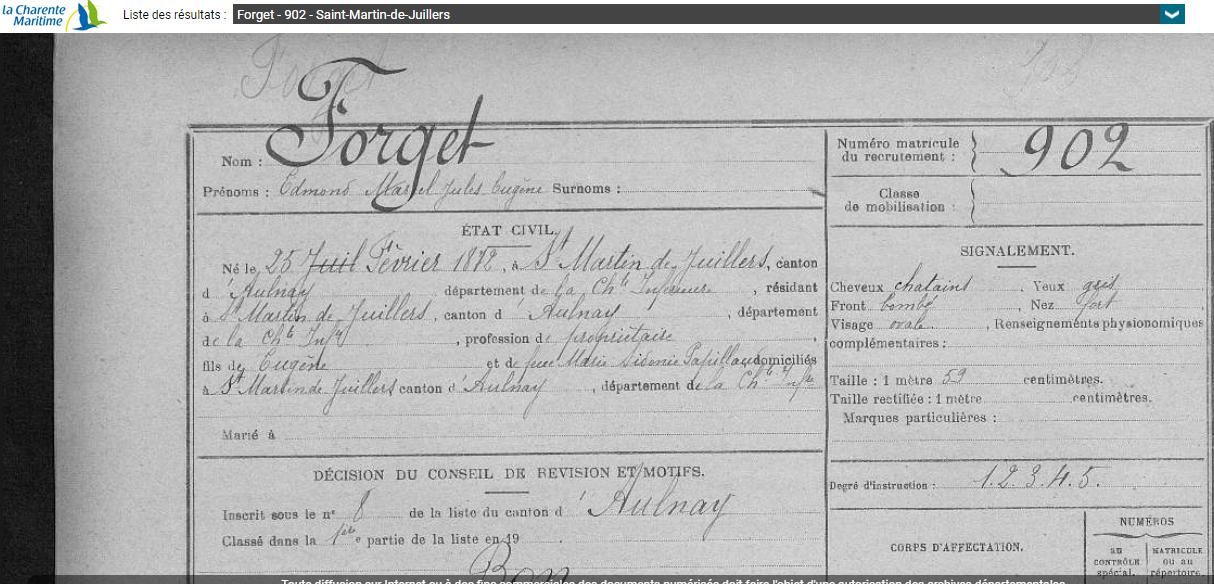 la Charente
Maritime
Liste des résultats : Forget - 902 - Saint-Martin-de-Juillers
Forget
Nom : Forget
Prénoms : Edmond Marcel Jules Eugène Surnoms :
ÉTAT CIVIL.
Né le 25 Juil Février 1872, à St Martin de Juillers, canton
d'Aulnay département de la Chte Inférieure, résidant
à St Martin de Juillers, canton d'Aulnay, département
de la Chte Infre, profession de propriétaire
fils de Eugène et de feue Marie Sidonie domiciliés
à St Martin de Juillers canton d'Aulnay, département de la Chte Infre
Marié à
DÉCISION DU CONSEIL DE REVISION ET MOTIFS.
Inscrit sous le n° 8 de la liste du canton d'Aulnay
Classé dans la 1re partie de la liste en 19
Bon
Numéro matricule
du recrutement : 902
Classe
de mobilisation :
SIGNALEMENT.
Cheveux chatains, Yeux gris
Front bombé, Nez fort
Visage ovale, Renseignements physionomiques
complémentaires :
Taille : 1 mètre 59 centimètres.
Taille rectifiée : 1 mètre centimètres.
Marques particulières :
Degré d'instruction : 1.2.3.4.5.
CORPS D'AFFECTATION.
NUMÉROS
au
CONTRÔLE
spécial.
MATRICULE
ou au
répertoire
Toute diffusion sur Internet ou à des fins commerciales des documents numérisés doit faire l'objet d'une autorisation des archives départementales